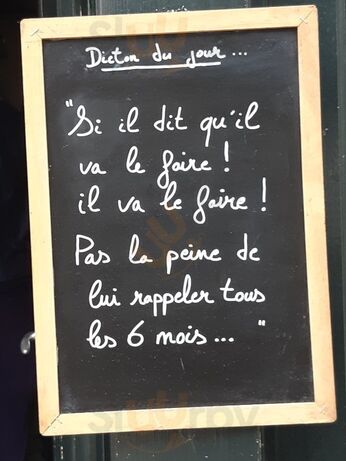 Dicton du jour...
"Si il dit qu'il
va le faire !
il va le faire !
Pas la peine de
lui rappeler tous
les 6 mois... "
Sluurpy